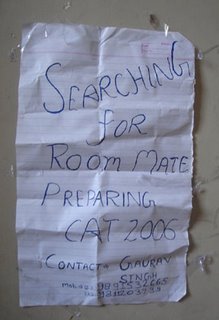 SEARCHING
FOR
ROOM MATE
PREPARING
CAT 2006
CONTACT GAURAV
SINGH